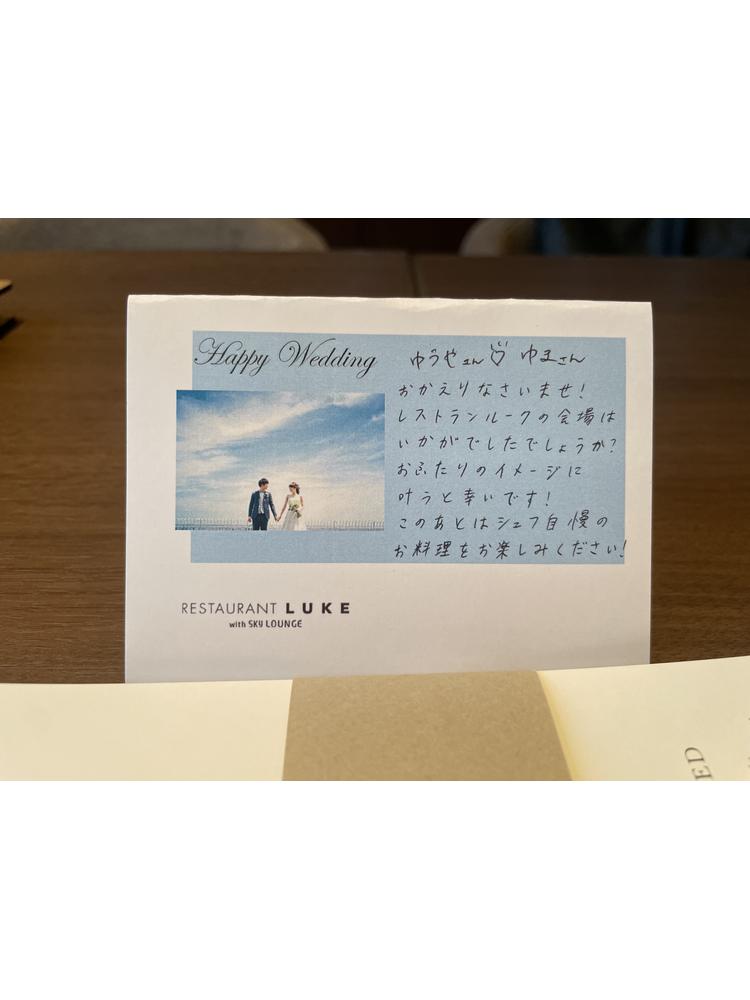 Happy Wedding
ゆうやさん♡ ゆまさん
おかえりなさいませ！
レストランルークの会場は
いかがでしたでしょうか？
おふたりのイメージに
叶うと幸いです！
このあとはシェフ自慢の
お料理をお楽しみください！
RESTAURANT LUKE
with SKY LOUNGE
ED